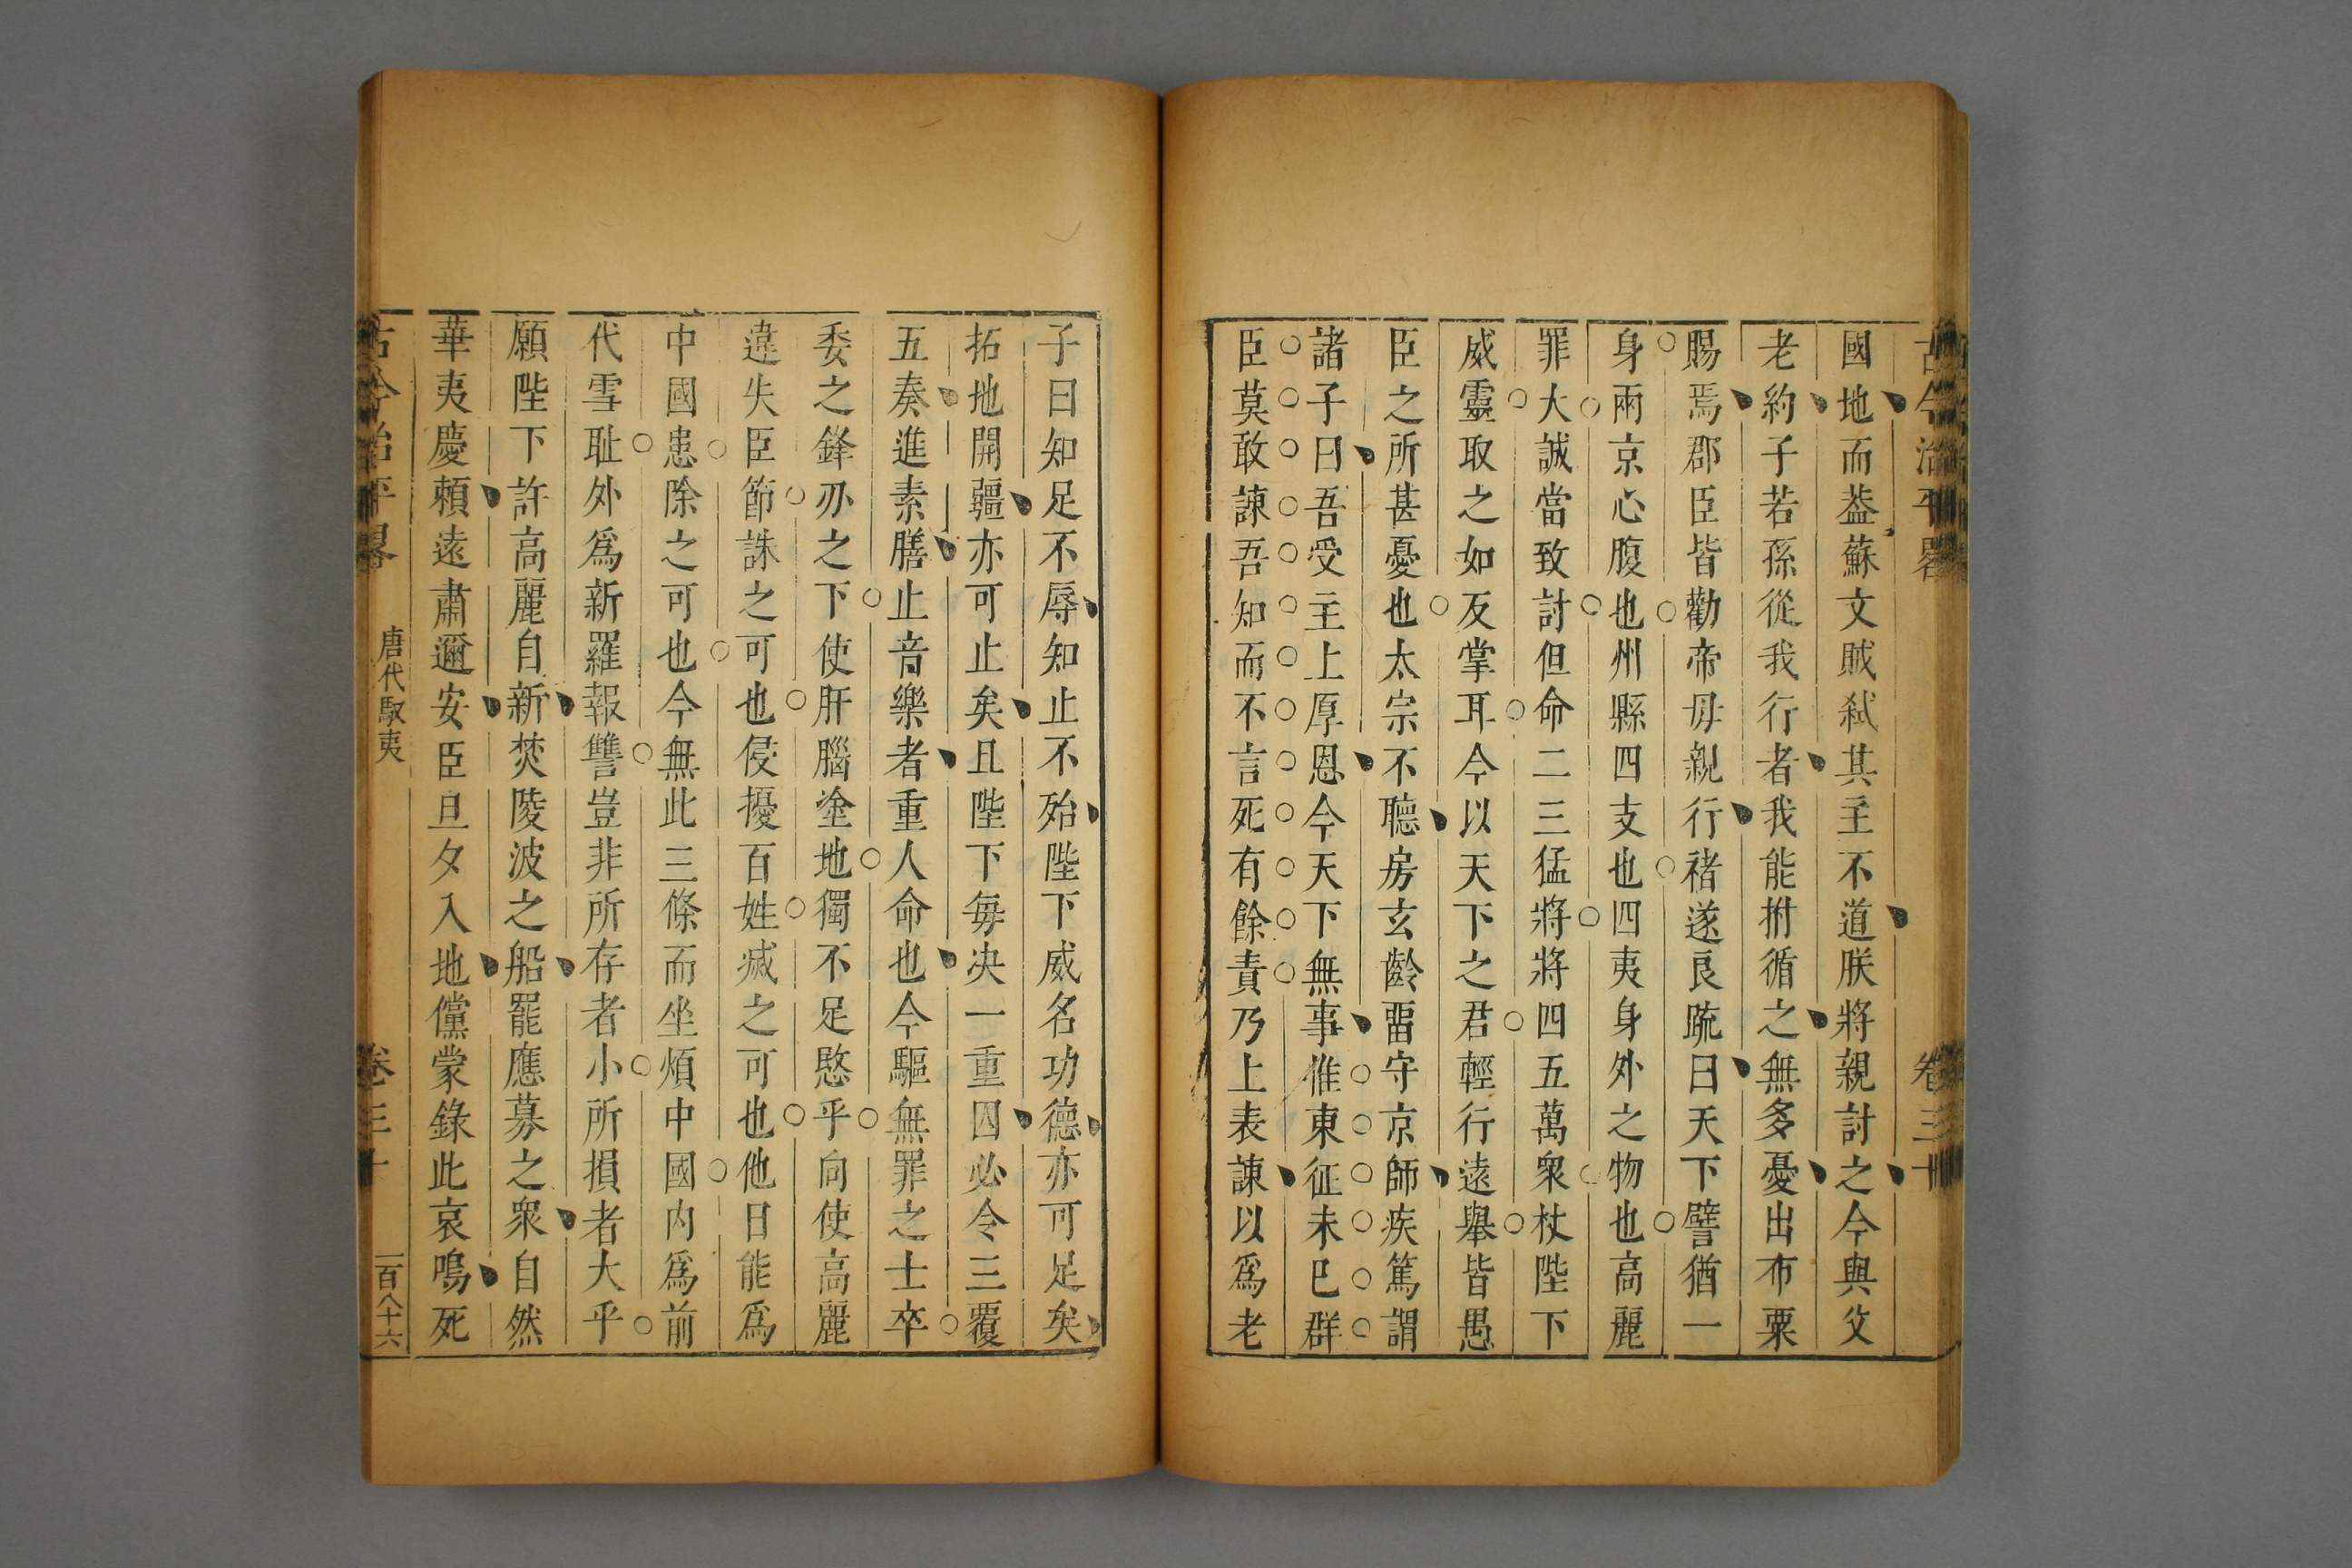 古今治平畧 卷三十
國地而葢蘇文賊弑其主不道朕將親討之今與父
老約子若孫從我行者我能拊循之無多憂出布粟
賜焉郡臣皆勸帝毋親行褚遂良疏曰天下譬猶一
身兩京心腹也州縣四支也四夷身外之物也高麗
罪大誠當致討但命二三猛將將四五萬衆杖陛下
威靈取之如反掌耳今以天下之君輕行遠舉皆愚
臣之所甚憂也太宗不聽房玄齡畱守京師疾篤謂
諸子曰吾受主上厚恩今天下無事惟東征未已群
臣莫敢諫吾知而不言死有餘責乃上表諫以爲老
子曰知足不辱知止不殆陛下威名功德亦可足矣
拓地開疆亦可止矣且陛下每决一重囚必令三覆
五奏進素膳止音樂者重人命也今驅無罪之士卒
委之鋒刃之下使肝腦塗地獨不足愍乎向使高麗
違失臣節誅之可也侵擾百姓滅之可也他日能爲
中國患除之可也今無此三條而坐煩中國内爲前
代雪耻外爲新羅報讐豈非所存者小所損者大乎
願陛下許高麗自新焚陵波之船罷應募之衆自然
華夷慶賴遠肅邇安臣旦夕入地儻蒙錄此哀鳴死
古今治平畧 唐代馭夷 卷三十 一百八十六